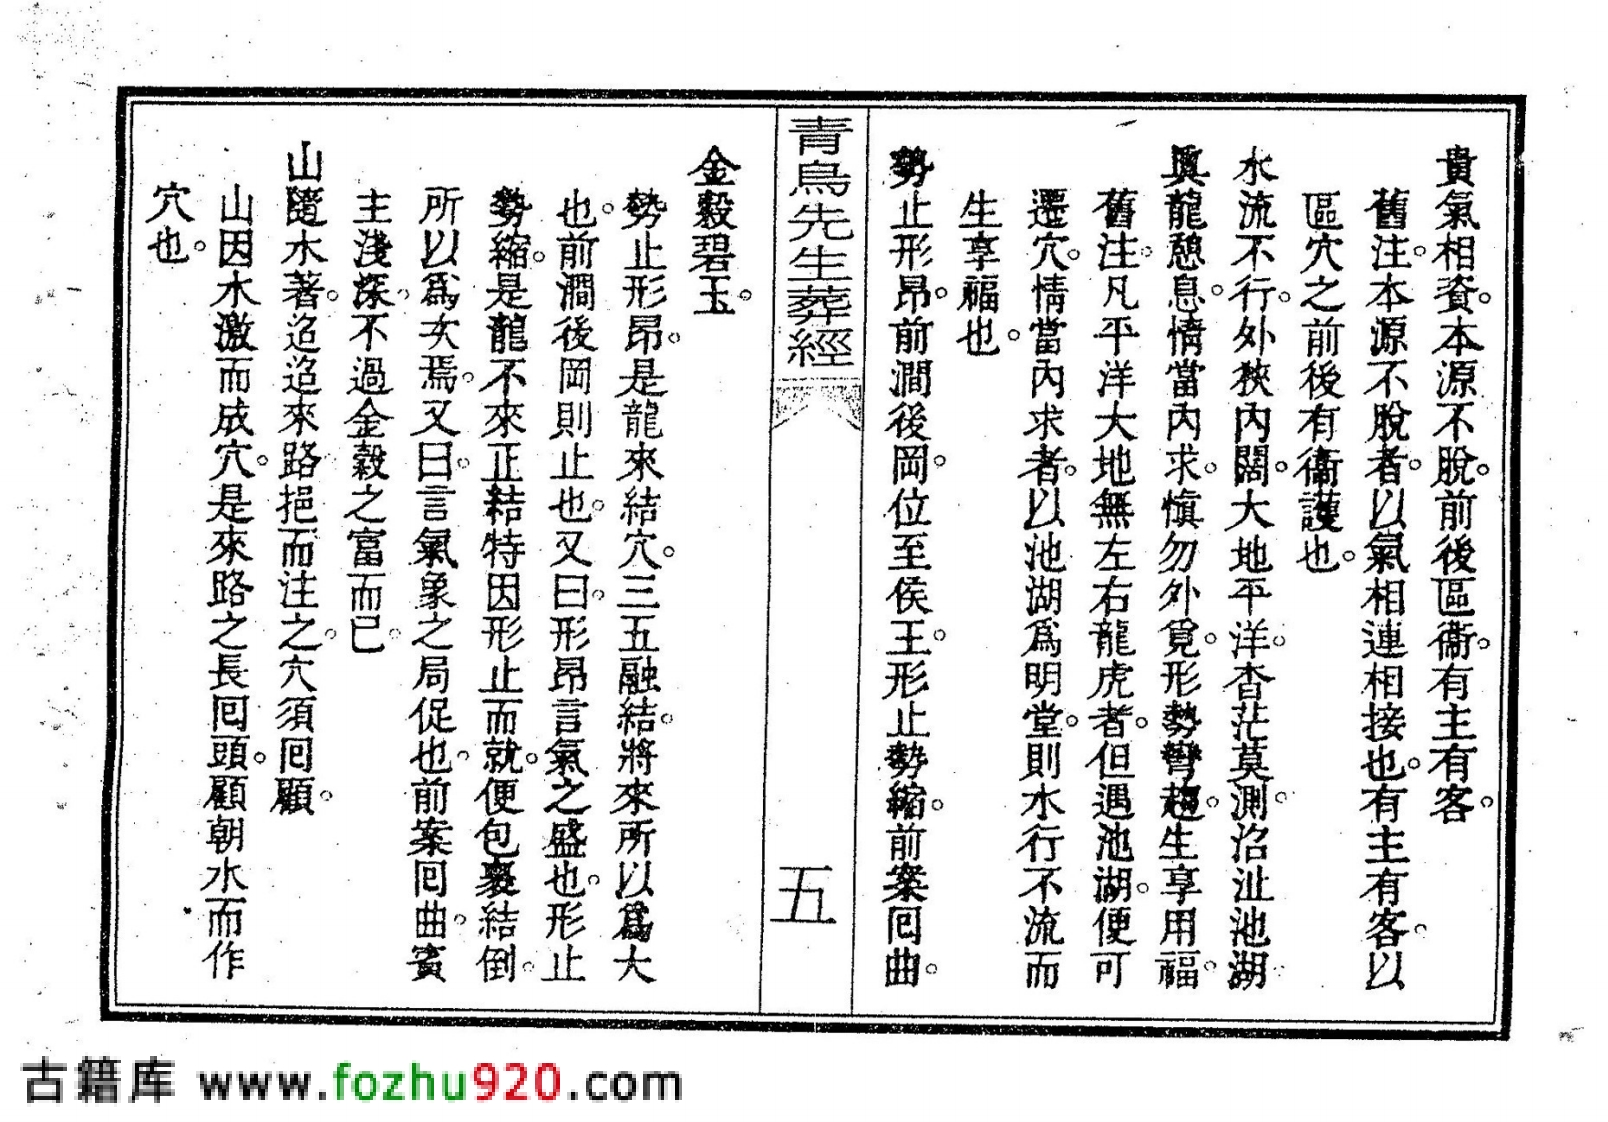 貴氣相資。本源不脫。前後區衞。有主有客。
舊注。本源不脫者。以氣相連相接也。有主有客。以
區穴之前後有衞護也。
水流不行。外狹內闊。大地平洋。杳茫莫測。沼沚池湖。
眞龍憩息。情當內求。愼勿外覓。形勢彎趨。生享用福。
舊注。凡平洋大地無左右龍虎者。但遇池湖。便可
遷穴。情當內求者。以池湖爲明堂。則水行不流而
生享福也。
勢止形昂。前澗後岡。位至侯王。形止勢縮。前案回曲。
青烏先生葬經
五
金穀碧玉。
勢止形昂。是龍來結穴。三五融結。將來所以爲大
也。前澗後岡則止也。又曰。形昂言氣之盛也。形止
勢縮。是龍不來正結。特因形止而就。便包裹結倒。
所以爲次焉。又曰。言氣象之局促也。前案回曲。賓
主淺深。不過金穀之富而已。
山隨水著。迢迢來路。挹而注之。穴須回顧。
山因水激而成穴。是來路之長。回頭顧朝水而作
穴也。
古籍库 www.fozhu920.com